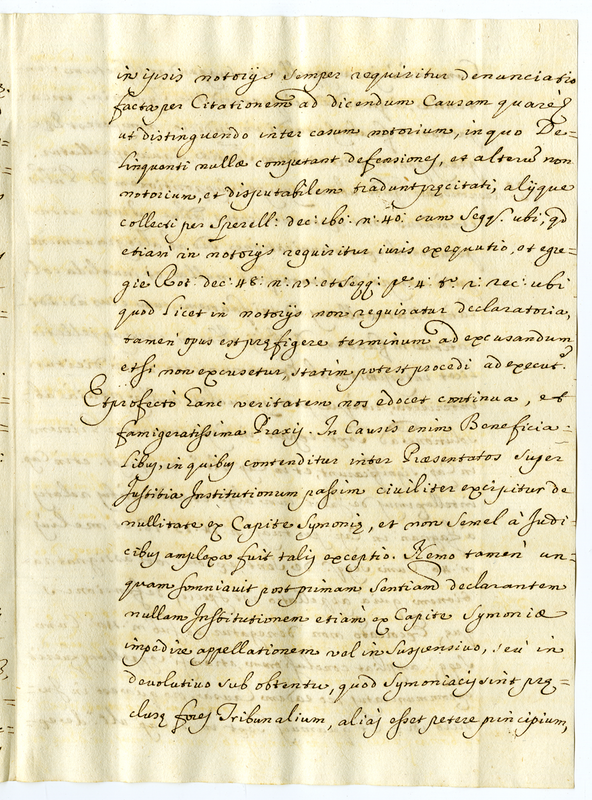 in ipsis notorijs semper requiritur denunciatio
facta per Citationem ad dicendum Causam quare &
ut distinguendo inter casum notorium, in quo De=
linquenti nullæ computant defensiones, et alterũ non
notorium, et disputabilem tradunt pręcitati, alijque
collecti per Sperell: dec: 160: n: 40: cum seqq. ubi, qd
etiam in notorijs requiritur iuris exequutio, et egre=
gie Rot: dec: 48: n: 13: et seqq: p: 4: t: 2: rec: ubi
quod licet in notorijs non requiratur declaratoria,
tamen opus est pręfigere terminum ad excusandum
et si non excusetur, statim potest procedi ad execut.
Et profectò hanc veritatem nos edocet continua, et
famigeratissima Praxis. In Causis enim Beneficia=
libus, in quibus contenditur inter Præsentatos super
Justitia Institutionum passim civiliter excipitur de
nullitate ex Capite Symonię, et non semel à Judi
cibus amplexa fuit talis exceptio. Nemo tamen un=
quam somniavit post primam Sentiam declarantem
nullam Institutionem etiam ex Capite Symoniæ
impedire appellationem vel in Suspensivo, seu in
devolutivo sub obtentu, quod Symoniacis sint prę=
clusę fores Tribunalium, alias esset petere principium,